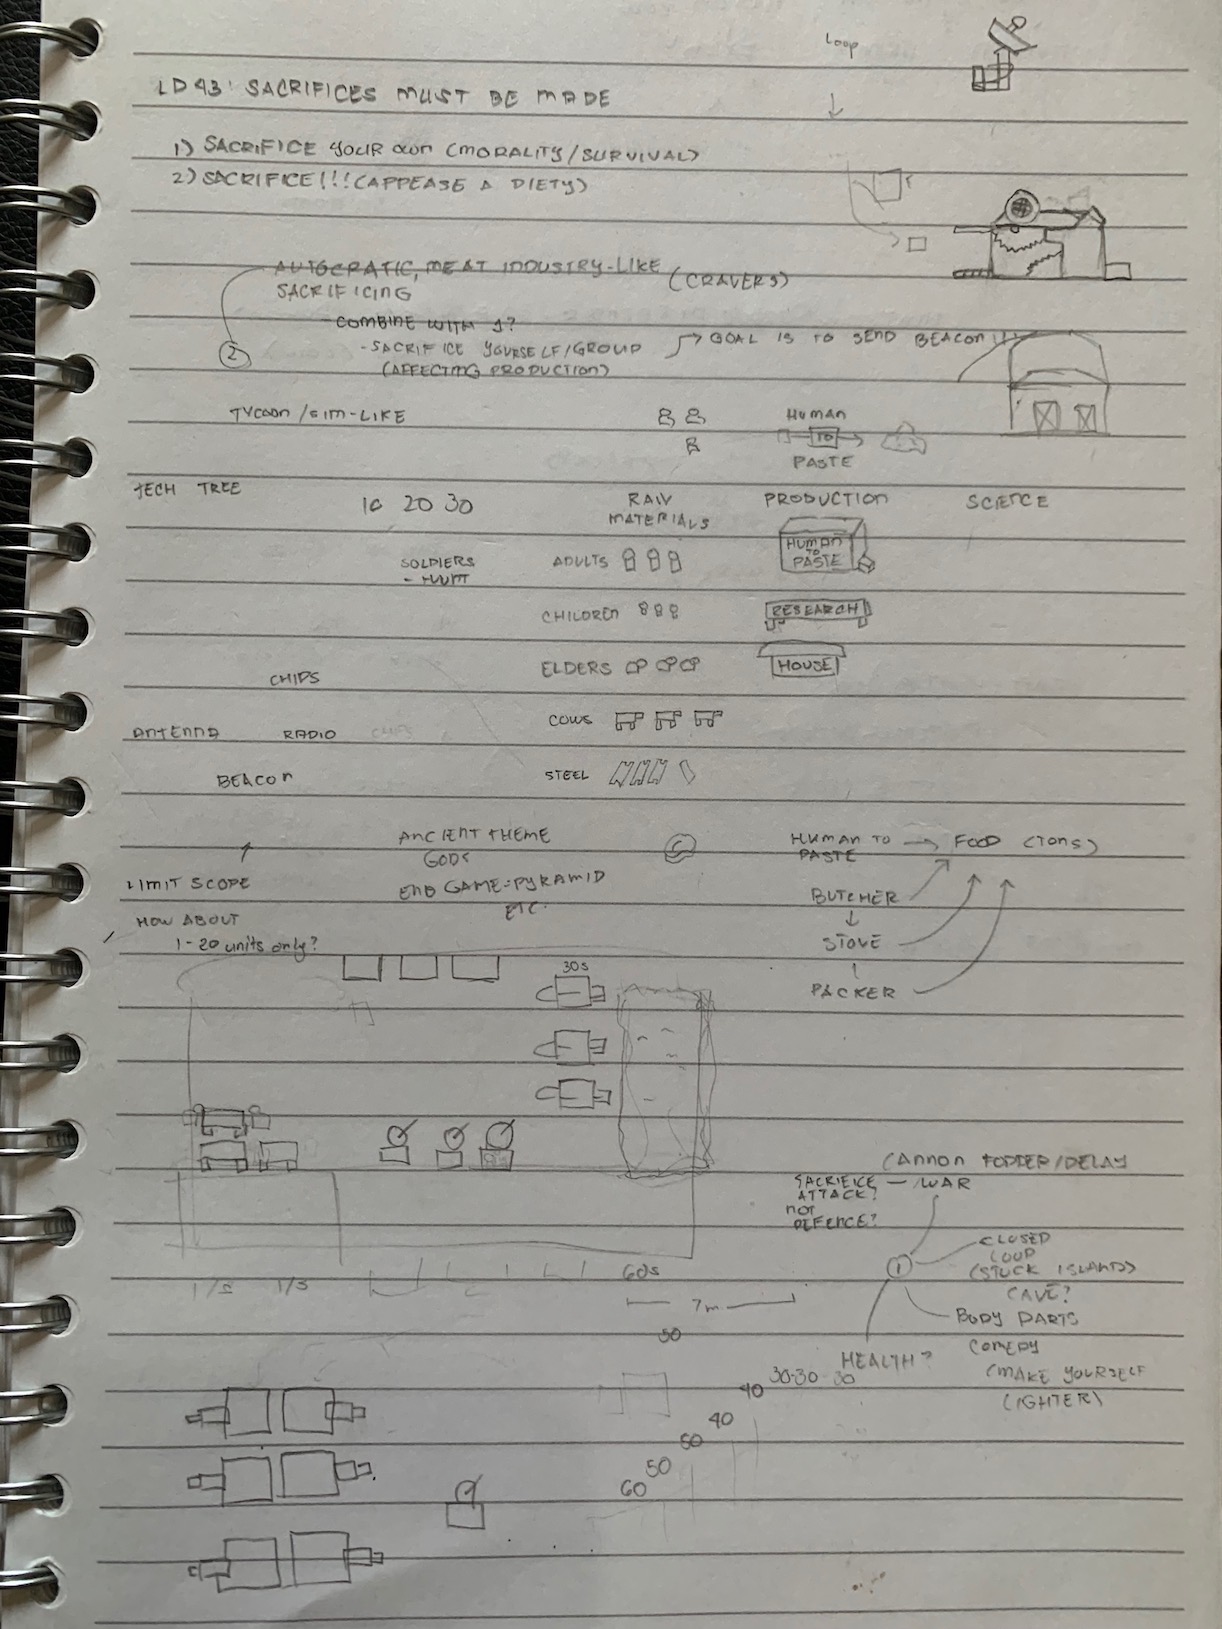 Loop
LD43: SACRIFICES MUST BE MADE
1) SACRIFICE YOUR OWN (MORALITY/SURVIVAL)
2) SACRIFICE!!! (APPEASE A DIETY)
AUTOCRATIC, MEAT INDUSTRY-LIKE (CRAVERS)
SACRIFICING
- COMBINE WITH 1?
2
- SACRIFICE YOURSELF/GROUP
(AFFECTING PRODUCTION)
GOAL IS TO SEND BEACON!!!
TYCOON/SIM-LIKE
HUMAN
TO
PASTE
TECH TREE
10 20 30
RAW
MATERIALS
PRODUCTION
SCIENCE
SOLDIERS
- HUNT
ADULTS
HUMAN
TO
PASTE
CHILDREN
RESEARCH
ELDERS
HOUSE
CHIPS
COWS
ANTENNA RADIO CHIPS
STEEL
BEACON
ANCIENT THEME
GODS
END GAME=PYRAMID
ETC.
LIMIT SCOPE
HOW ABOUT
1-20 units only?
HUMAN TO
PASTE
FOOD (TONS)
BUTCHER
STOVE
PACKER
30s
CANNON FODDER/DELAY
SACRIFICE
ATTACK?
NOT
DEFENCE?
WAR
1
CLOSED
LOOP
(STUCK ISLAND)
CAVE?
BODY PARTS
COMEDY
(MAKE YOURSELF
LIGHTER)
HEALTH?
1/s 1/s
60s
7m
50
30-30 30
40
40
50
50
60